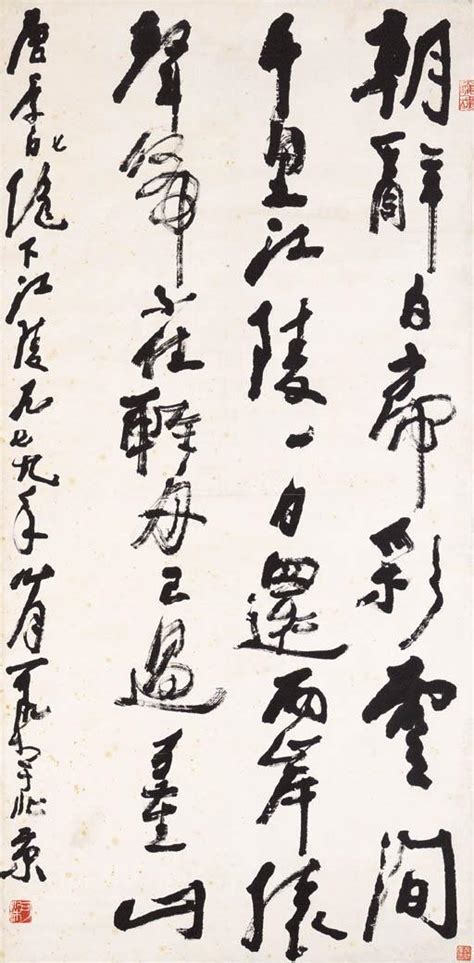 朝辭白帝彩雲間
千里江陵一日還兩岸猿
聲啼不住輕舟已過万重山
唐李白七絶下江陵一九七九年月于北京